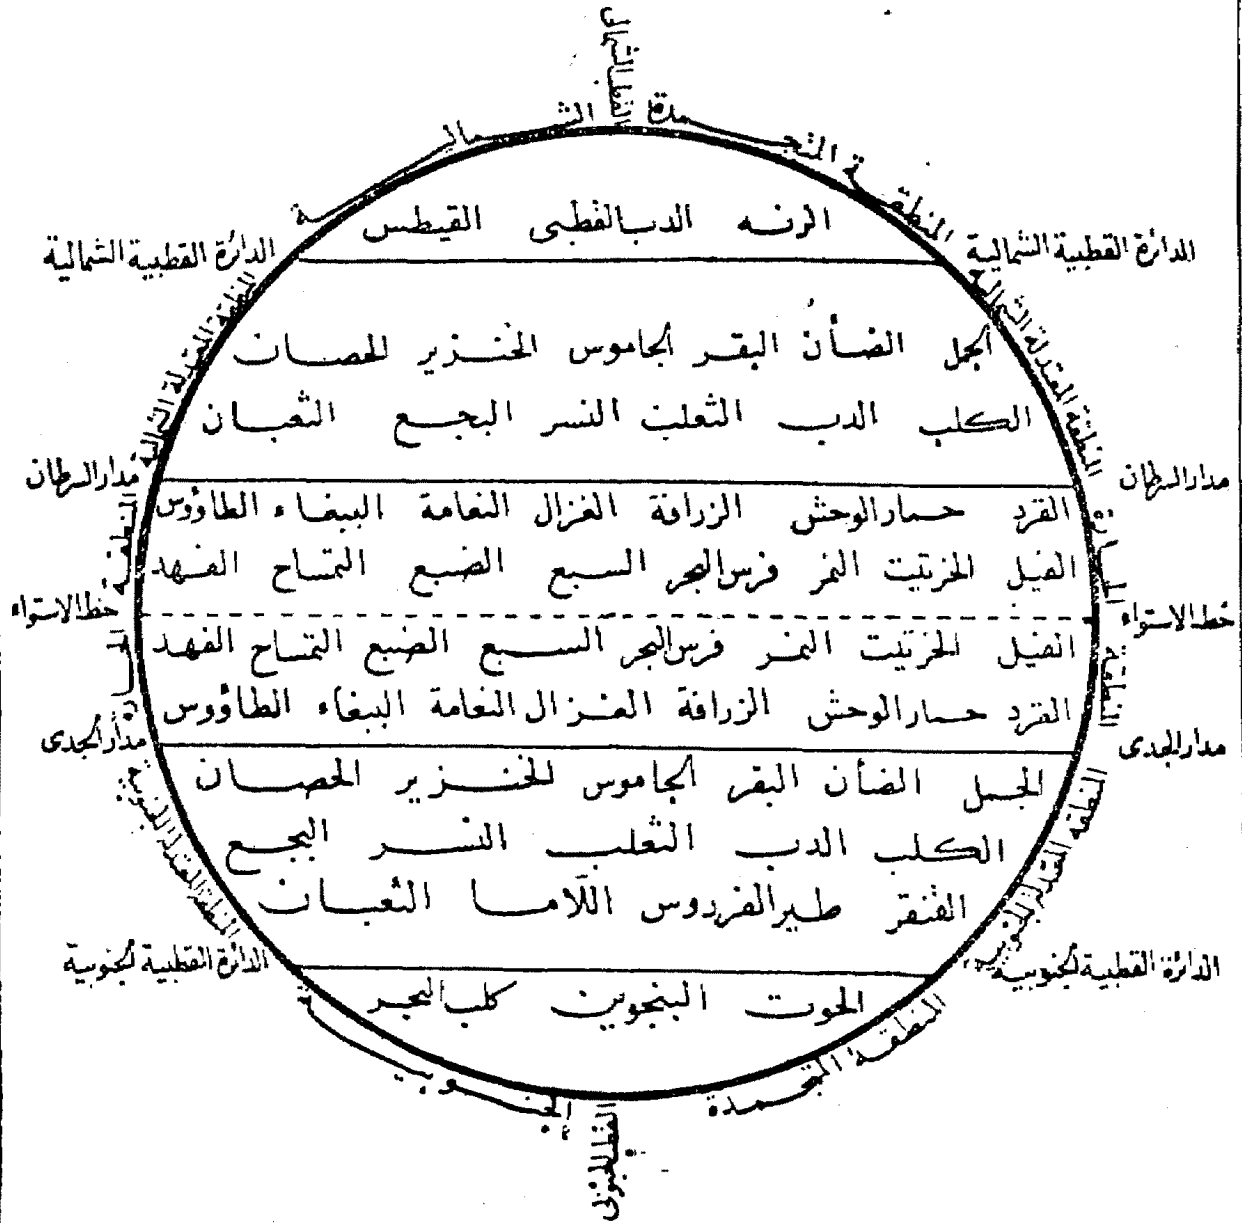 القطب الشمالي
المنطقة المتجمدة الشمالية
الرنه الدب القطبى القيطس
الدائرة القطبية الشمالية
الدائرة القطبية الشمالية
المنطقة المعتدلة الشمالية
المنطقة المعتدلة الشمالية
الجمل الضأن البقر الجاموس الخنزير الحصان
الكلب الدب الثعلب النسر البجع الثعبان
مدار السرطان
مدار السرطان
القرد حمار الوحش الزرافة الغزال النعامة الببغاء الطاؤوس
الفيل الخرتيت النمر فرس البحر السبع الضبع التمساح الفهد
المنطقة الحارة
خط الاستواء
خط الاستواء
المنطقة الحارة
الفيل الخرتيت النمر فرس البحر السبع الضبع التمساح الفهد
القرد حمار الوحش الزرافة الغزال النعامة الببغاء الطاؤوس
مدار الجدى
مدار الجدى
الجمل الضأن البقر الجاموس الخنزير الحصان
الكلب الدب الثعلب النسر البجع
القنقر طير الفردوس اللاما الثعبان
المنطقه المعتدلة الجنوبية
المنطقة المعتدلة الجنوبية
الدائرة القطبية الجنوبية
الدائرة القطبية الجنوبية
الحوت البنجوين كلب البحر
المنطقة المتجمدة الجنوبية
القطب الجنوبى